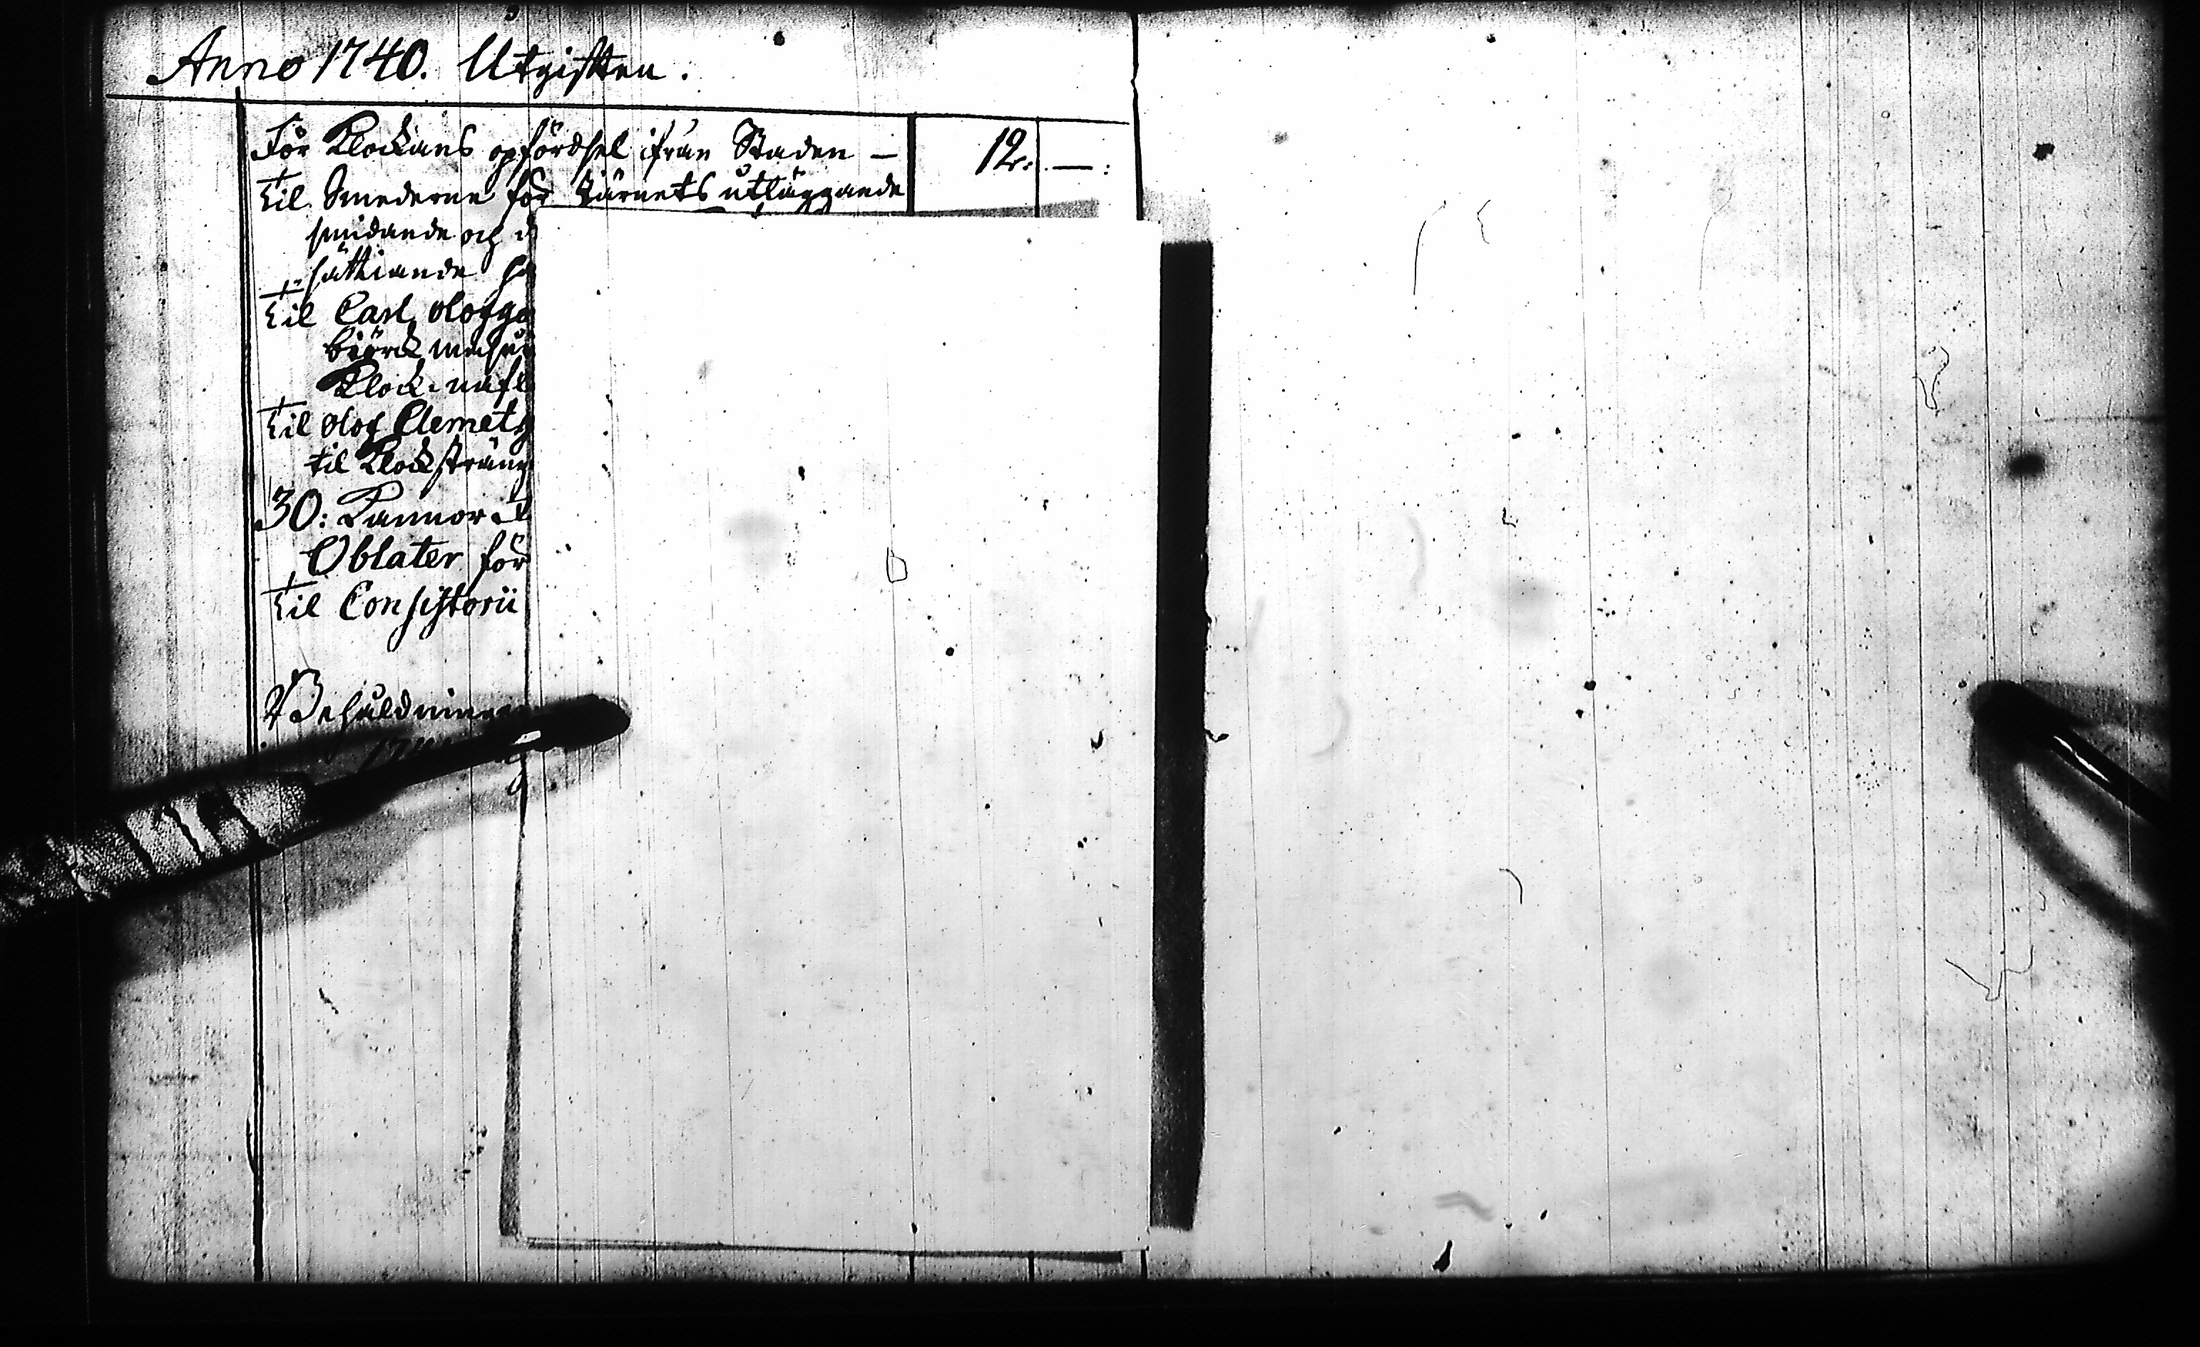 Anno 1740. Utgiften.
För Klockans opfördsel ifrån Staden — 12. —:
Til Smederne för Järnets utläggande
smidande och
sättiande
Til Carl Olofs
björck
Klock
Til Olof Clemets
til Klocksträng
30: Kannor
Oblater för
Til Consistorii
Behåldningen